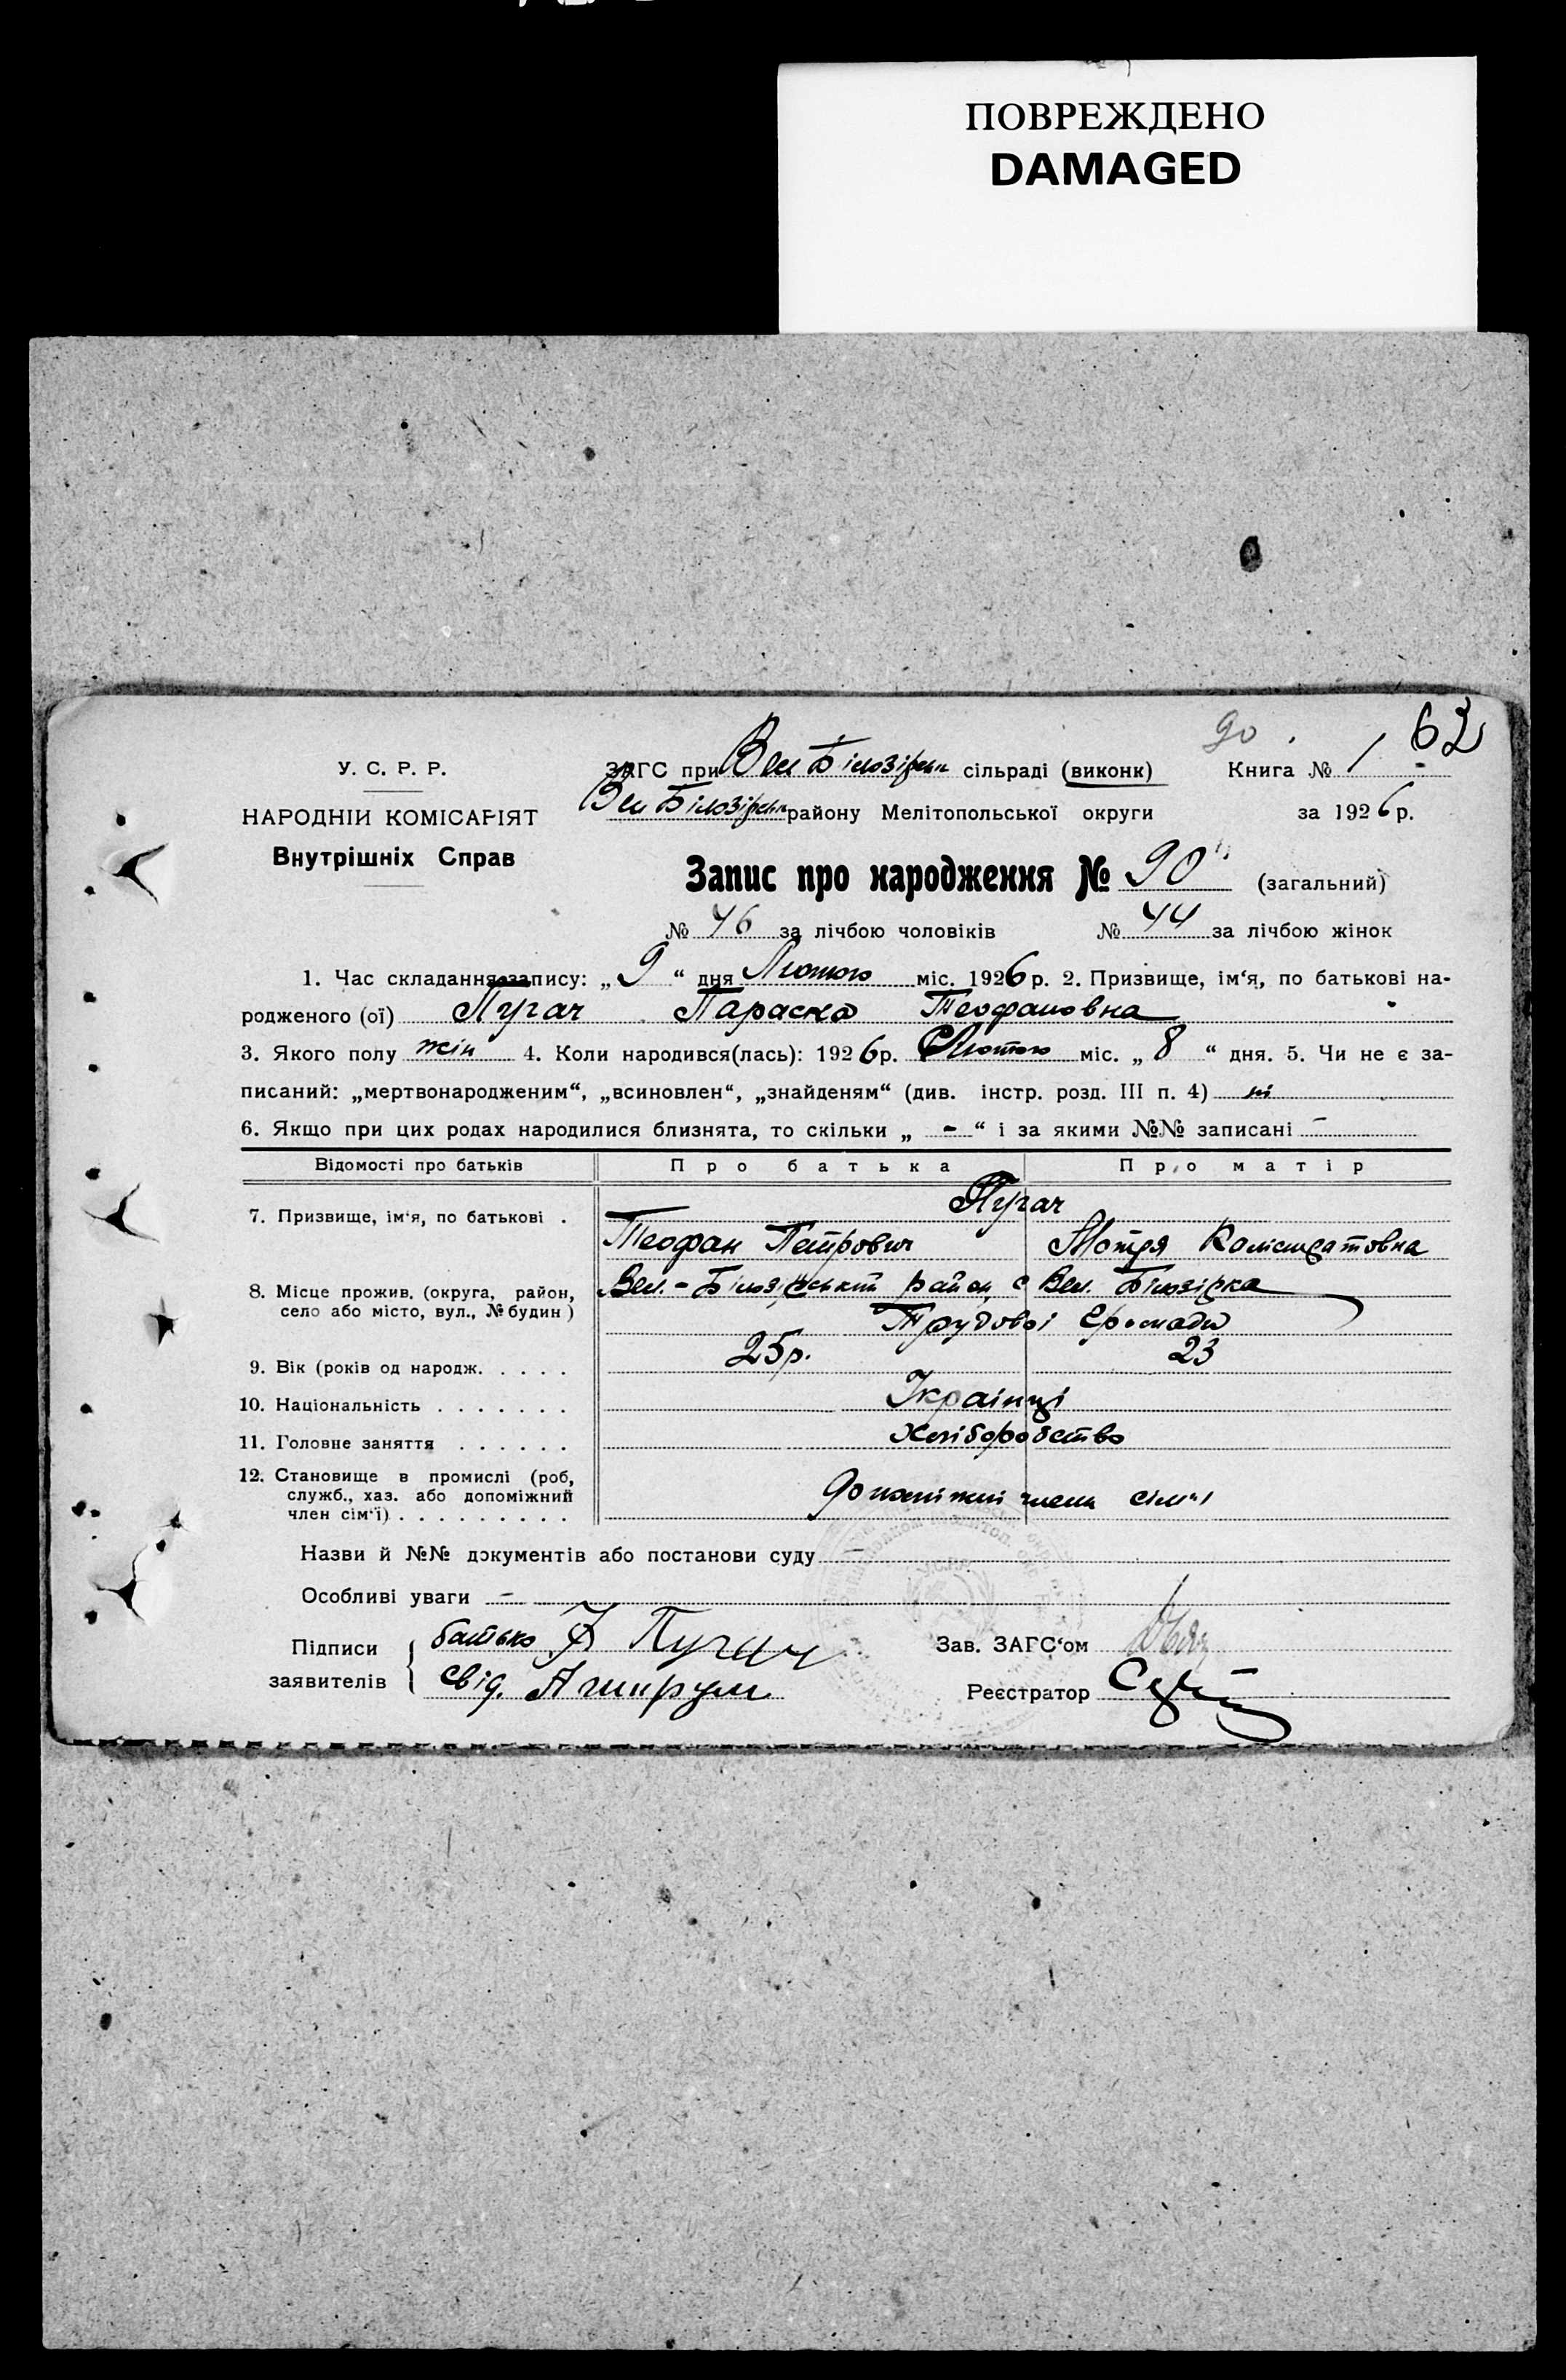 ПОВРЕЖДЕНО
DAMAGED
90
62
У. С. Р. Р.
ЗАГС при Вел Білозірськ сільраді (виконк) Книга № 1
НАРОДНІЙ КОМІСАРІЯТ
Вел Білозірськ району Мелітопольської округи за 1926 р.
Внутрішніх Справ
Запис про народження № 90 (загальний)
№ 46 за лічбою чоловіків № 44 за лічбою жінок
1. Час складання запису: „ 9 “ дня Лютого міс. 1926 р. 2. Призвище, ім‘я, по батькові на-
родженого (ої) Пугач Параска Теофановна
3. Якого полу жін 4. Коли народився(лась): 1926 р. Лютого міс. „ 8 “ дня. 5. Чи не є за-
писаний: „мертвонародженим“, „всиновлен“, „знайденям“ (див. інстр. розд. III п. 4) ні
6. Якщо при цих родах народилися близнята, то скільки „ - “ і за якими №№ записані -
Відомості про батьків Про батька Про матір
Пугач
7. Призвище, ім‘я, по батькові .
Теофан Петрович Мотря
Вел.-Білозірський район с Вел. Білозірка
8. Місце прожив. (округа, район,
село або місто, вул., № будин)
Трудової Громади
9. Вік (років од народж. . . . . 25р. 23
10. Національність . . . . . . . Українці
11. Головне заняття . . . . . . хліборобство
12. Становище в промислі (роб,
служб., хаз. або допоміжний
член сім‘ї) . . . . . . . . . члени сім‘ї
Назви й №№ документів або постанови суду -
Особливі уваги -
Підписи батько Ф Пугач Зав. ЗАГС‘ом
заявителів свід. Реєстратор